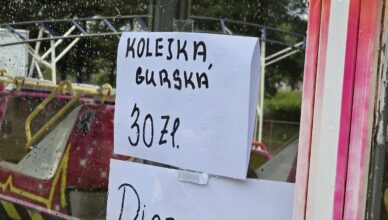 KOLEJKA,
GURSKA
30 Zł.